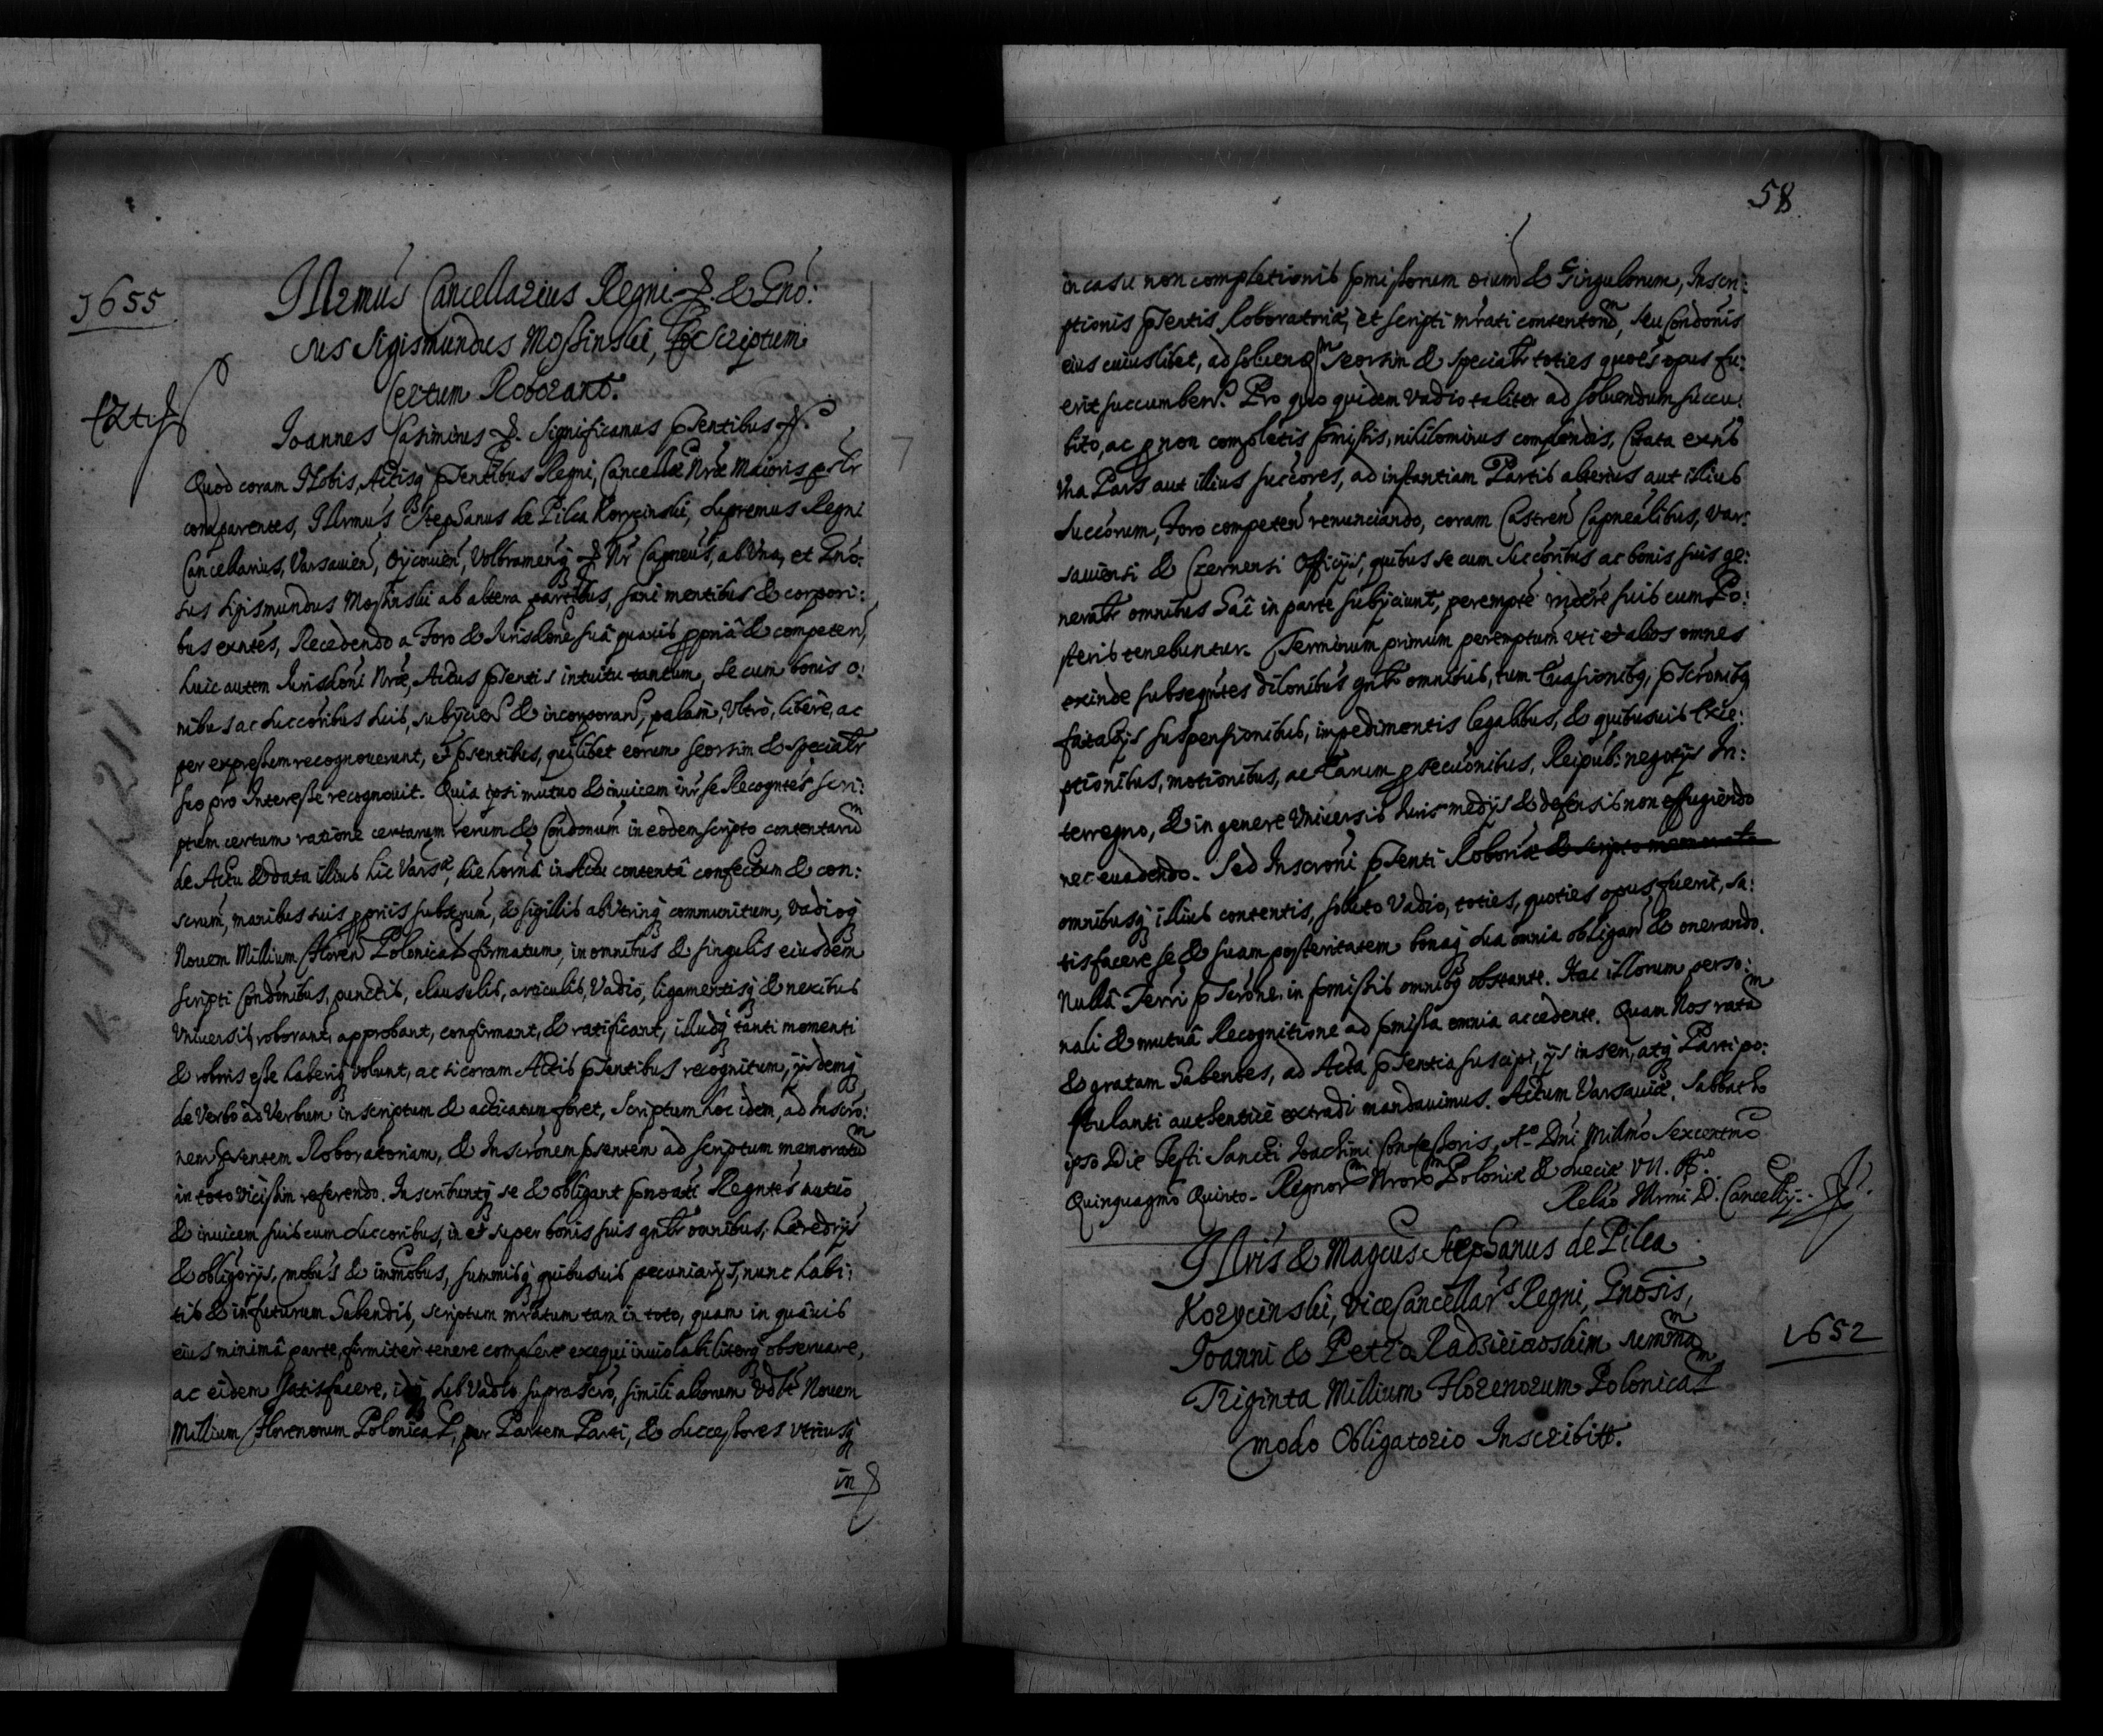 1655
Illrmus Cancellarius Regni & Gno:
sus Sigismundus Mossinski, Scriptum
certum Roborant.
Joannes Casimirus Significamus pntibus
Quod coram Nobis, Actisq pntibus Regni, Cancellae Nrae Maioris pslr
comparentes, Illrmus Stephanus de Pilca Korycinski, Supremus Regni
Cancellarius, Varsavien, Oycovien, Volbramenq Nr Capneus, ab Vna, et Gno:
sus Sigismundus Mossinski ab altera partibus, sani mentibus & corpori:
bus exntes, Recedendo a Foro & Jurisdone sua quavis ppria & competen,
huic autem Jurisdoni Nrae, Actus pntis intuitu tantum, se cum bonis o:
nibus ac succoribus suis, subycien & incorporan, palam, Vltro, libere, ac
per expressum recognoverunt, et pntibus, quilibet eorum seorsim & specialr
suo pro Interesse recognovit. Quia ipsi mutuo & invicem intr se Recogntes scri:
ptum certum ratione certarum rerum & Condonum in eodem scripto contentarum
de Actu & data illius hic Varsae, die horna in Actu contenta confectum & con:
scrum, manibus suis ppriis subscrum, & sigillis ab Vtrinq communitum, vadioq
Novem Millium Floren Polonical firmatum, in omnibus & singulis eiusdem
scripti Condonibus, punctis, clausulis, articulis, Vadio, ligamentisq & nexibus
Vniversis, roborant, approbant, confirmant, & ratificant, illudq tanti momenti
& roboris esse haberiq volunt, ac si coram Actis pntibus recognitum, ijsdemq
de Verbo ad Verbum inscriptum & acticatum foret, Scriptum hoc idem, ad Inscro:
nem pntem Roboratoriam, & Inscronem pntem ad scriptum memoratum
in toto vicissim referendo. Inscribuntq se & obligant pnoati Regntes mutuo
& invicem suis cum succoribus, in et super bonis suis gnlr omnibus, haeredijs
& obligorijs, mobus & immobus, summisq quibusvis pecuniarijs, nunc habi:
tis & in futurum habendis, scriptum mratum tam in toto, quam in quavis
eius minima parte, firmiter tenere complere exequi inviolabiliterq observare,
ac eidem satisfacere, sub Vadio suprascro, simili aliorum Novem
Millium Florenorum Polonical, per Partem Parti, & successores vtriusq
in
58
in casu non completionis pmissorum oium & singulorum, Inscri:
ptionis pntis Roboratoriae, et scripti mrati contentorum, seu Condonis
eius cuiuslibet, ad solvend seorsim & specialr toties quoties opus fu:
erit succumben. Pro quo quidem vadio taliter ad solvendum succu:
bito, ac p non completis pmissis, nihilominus complendis, Citata extrib
Vna Pars aut illius succores, ad instantiam Partis alterius aut illius
succorum, Foro competen renunciando, coram Castren Capnealibus, Var:
saviensi & Czernensi Officijs, quibus se cum succoribus ac bonis suis ge:
neralr omnibus hac in parte subyciunt, perempte suis cum Po:
steris tenebuntur. Terminum primum peremptum vti et alios omnes
exinde subseqntes dilonibus gnlr omnibus, tum Evasionibq, pscronibq
fatalijs suspensionibus, impedimentis legalibus, & quibusvis Exce:
ptionibus, motionibus, ac Earum psecuonibus, Reipub: negotijs In:
terregno, & in genere Vniversis Juris medijs & defensis non effugiendo
nec evadendo. Sed Inscroni pnti Roboriae & scripto memorato
omnibusq illius contentis, soluto Vadio, toties, quoties opus fuerit, sa:
tisfacere se & suam posteritatem bonaq sua omnia obligan & onerando.
Nulla Terri pscrone in pmissis omnibq obstante. Hac illorum perso:
nali & mutua Recognitione ad pmissa omnia accedente. Quam Nos ratam
& gratam habentes, ad Acta pntia suscipi, ijs inseri, atq Parti po:
stulanti authentice extradi mandavimus. Actum Varsaviae, Sabbatho
ipso Die Festi Sancti Joachimi Confessoris, Ao Dni Millmo Sexcentmo
Quinquagmo Quinto. Regnorm Nrorm Poloniae & Sueciae VII. Ao
Relao Illrmi D. Cancellrij.
Illris & Magcus Stephanus de Pilca
Korycinski, ViceCancellars Regni, Gnosis,
Joanni & Petro Radzieiowskim summam
Triginta Millium Florenorum Polonicalm
modo Obligatorio Inscribitt.
1652